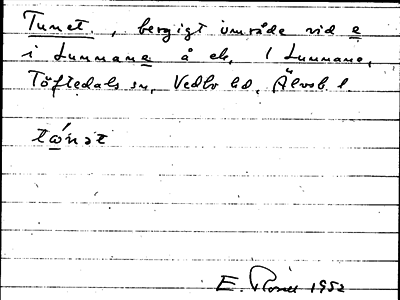 Tunet., bergigt område vid e
i Lunnane å ek, 1 Lunnane,
Töftedals sn, Vedbo hd, Älvsb. l.
tώnət
E. Rosell 1952